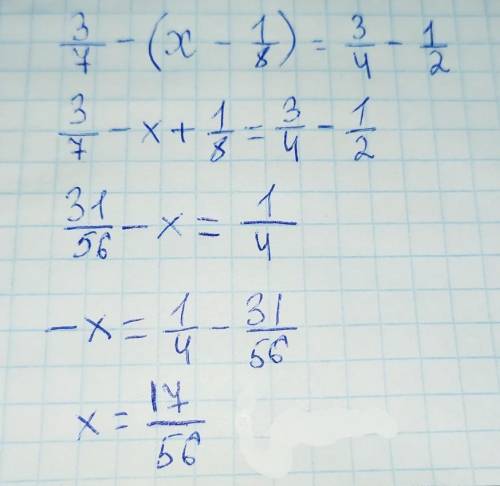 3/7 - (x - 1/8) = 3/4 - 1/2
3/7 - x + 1/8 = 3/4 - 1/2
31/56 - x = 1/4
- x = 1/4 - 31/56
x = 17/56